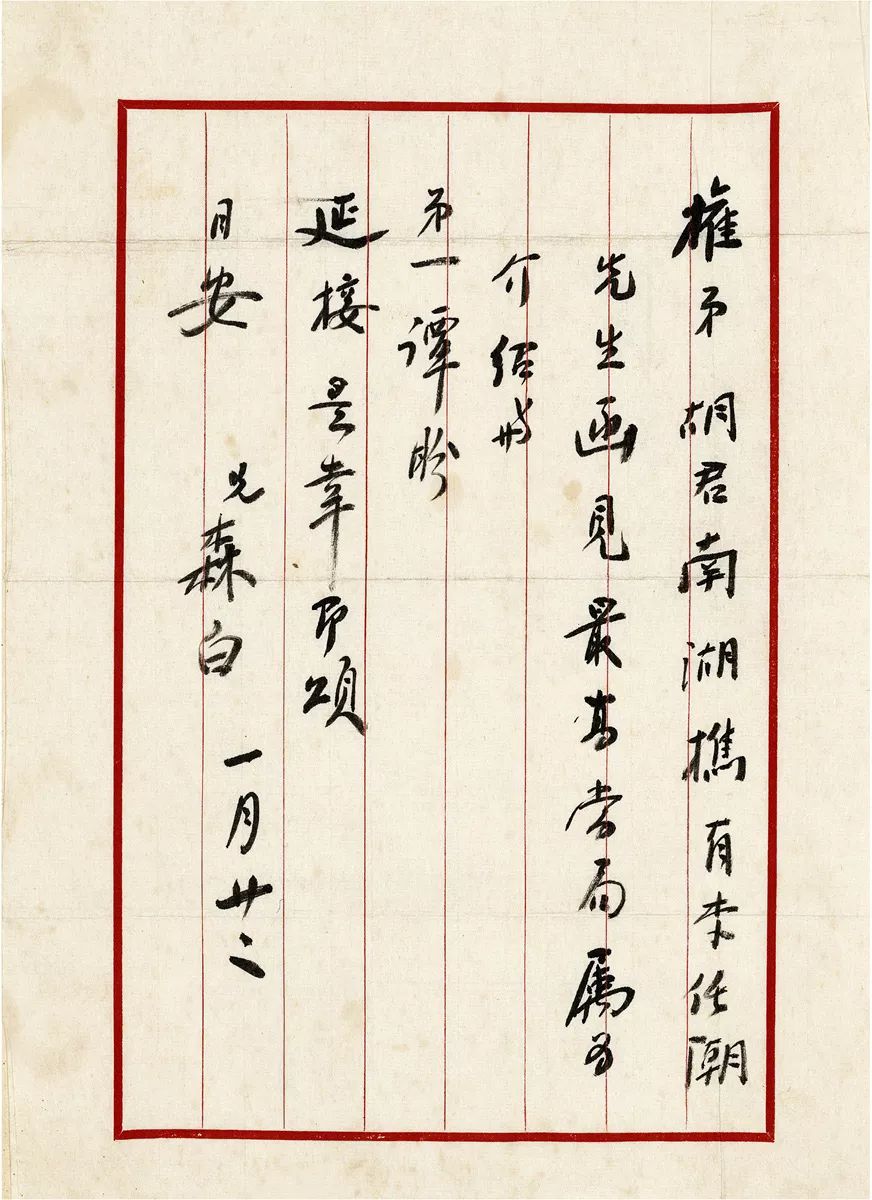 權弟胡君南湖携有李任潮
先生函見最高當局属为
介绍於
弟一谭盼
延接是幸即頌
日安
兄森白 一月廿二